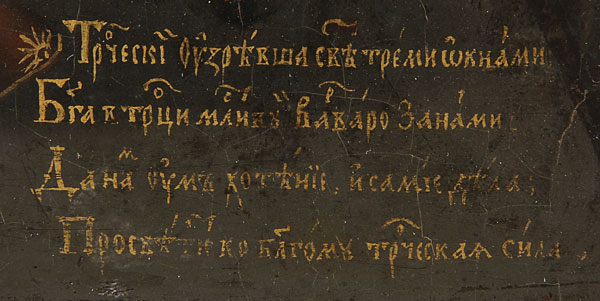 Трⷪ҇ческїй Ꙋзрѣвша свѣ тремѝ ѡкнами
Бг҃а в трⷪ҇ци млⷭ҇тивꙋ Варваро За нами
Да наⷨ ꙋмъ хотѣнїе, и самые дѣла;
Просвѣти ко благомꙋ трⷪ҇ческая сила,